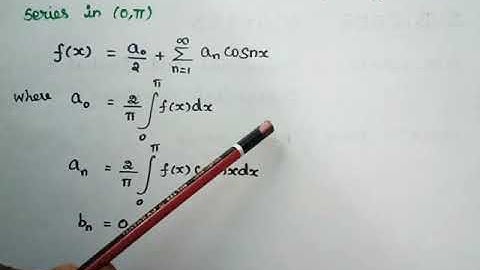 series in (0,π)
f(x) = a₀/2 + ∑_{n=1}^{∞} aₙ cosnx
where a₀ = 2/π ∫₀^π f(x)dx
aₙ = 2/π ∫₀^π f(x) c xdx
bₙ = 0